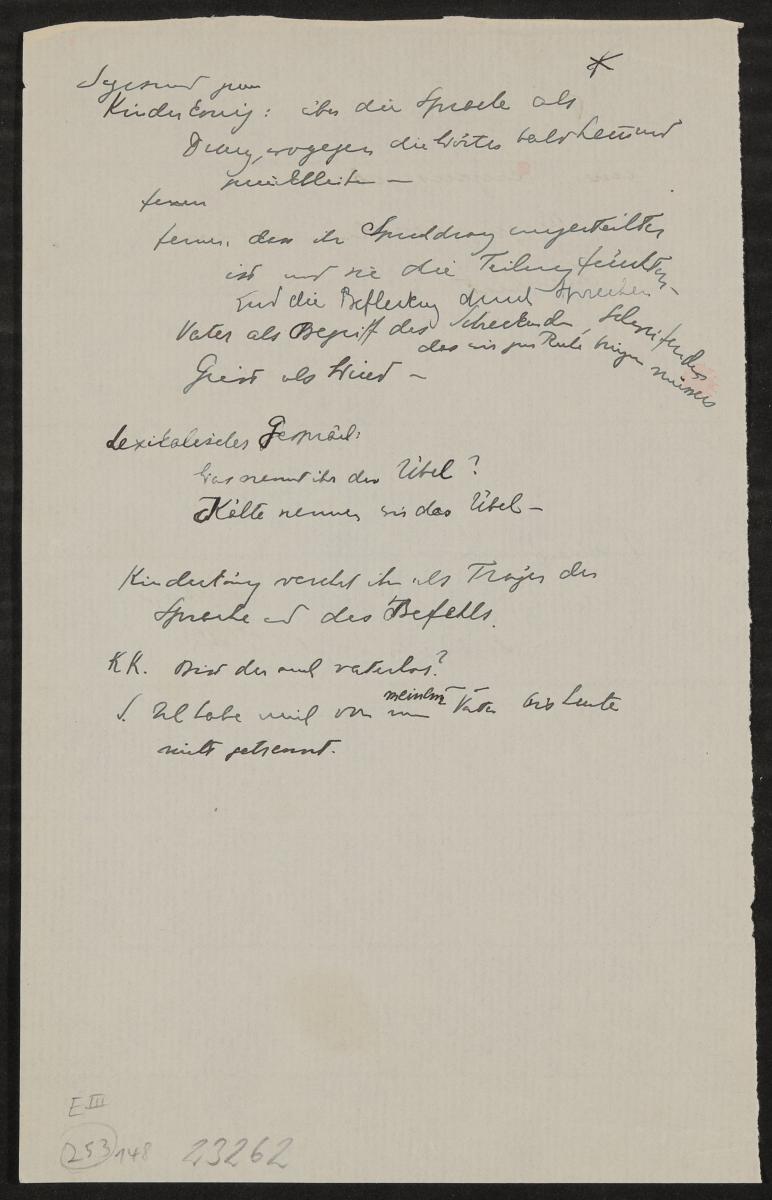 *
Sigismund zum
Kinderkönig: über die Sprache als
Drang, wogegen die Worte bald hemmend
zurückbleiben —
fernen
ferner, dass ihr Spieldrang ungeteilter
ist und sie die Teilung fürchten,
und die Befleckung durch Sprechen
Vater als Begriff des Schreckenden, Schweifenden
das wir zur Ruhe bringen müssen
Geist als Wind —
Lexikalisches Gespräch:
Was nennt ihr das Übel?
Kälte nennen wir das Übel —
Kinderkönig verehrt ihn als Träger der
Sprache und des Befehls.
KK. Bist du auch vaterlos?
S. Ich habe mich von meinem Vater bis heute
nicht getrennt.
E III
253 148 23262